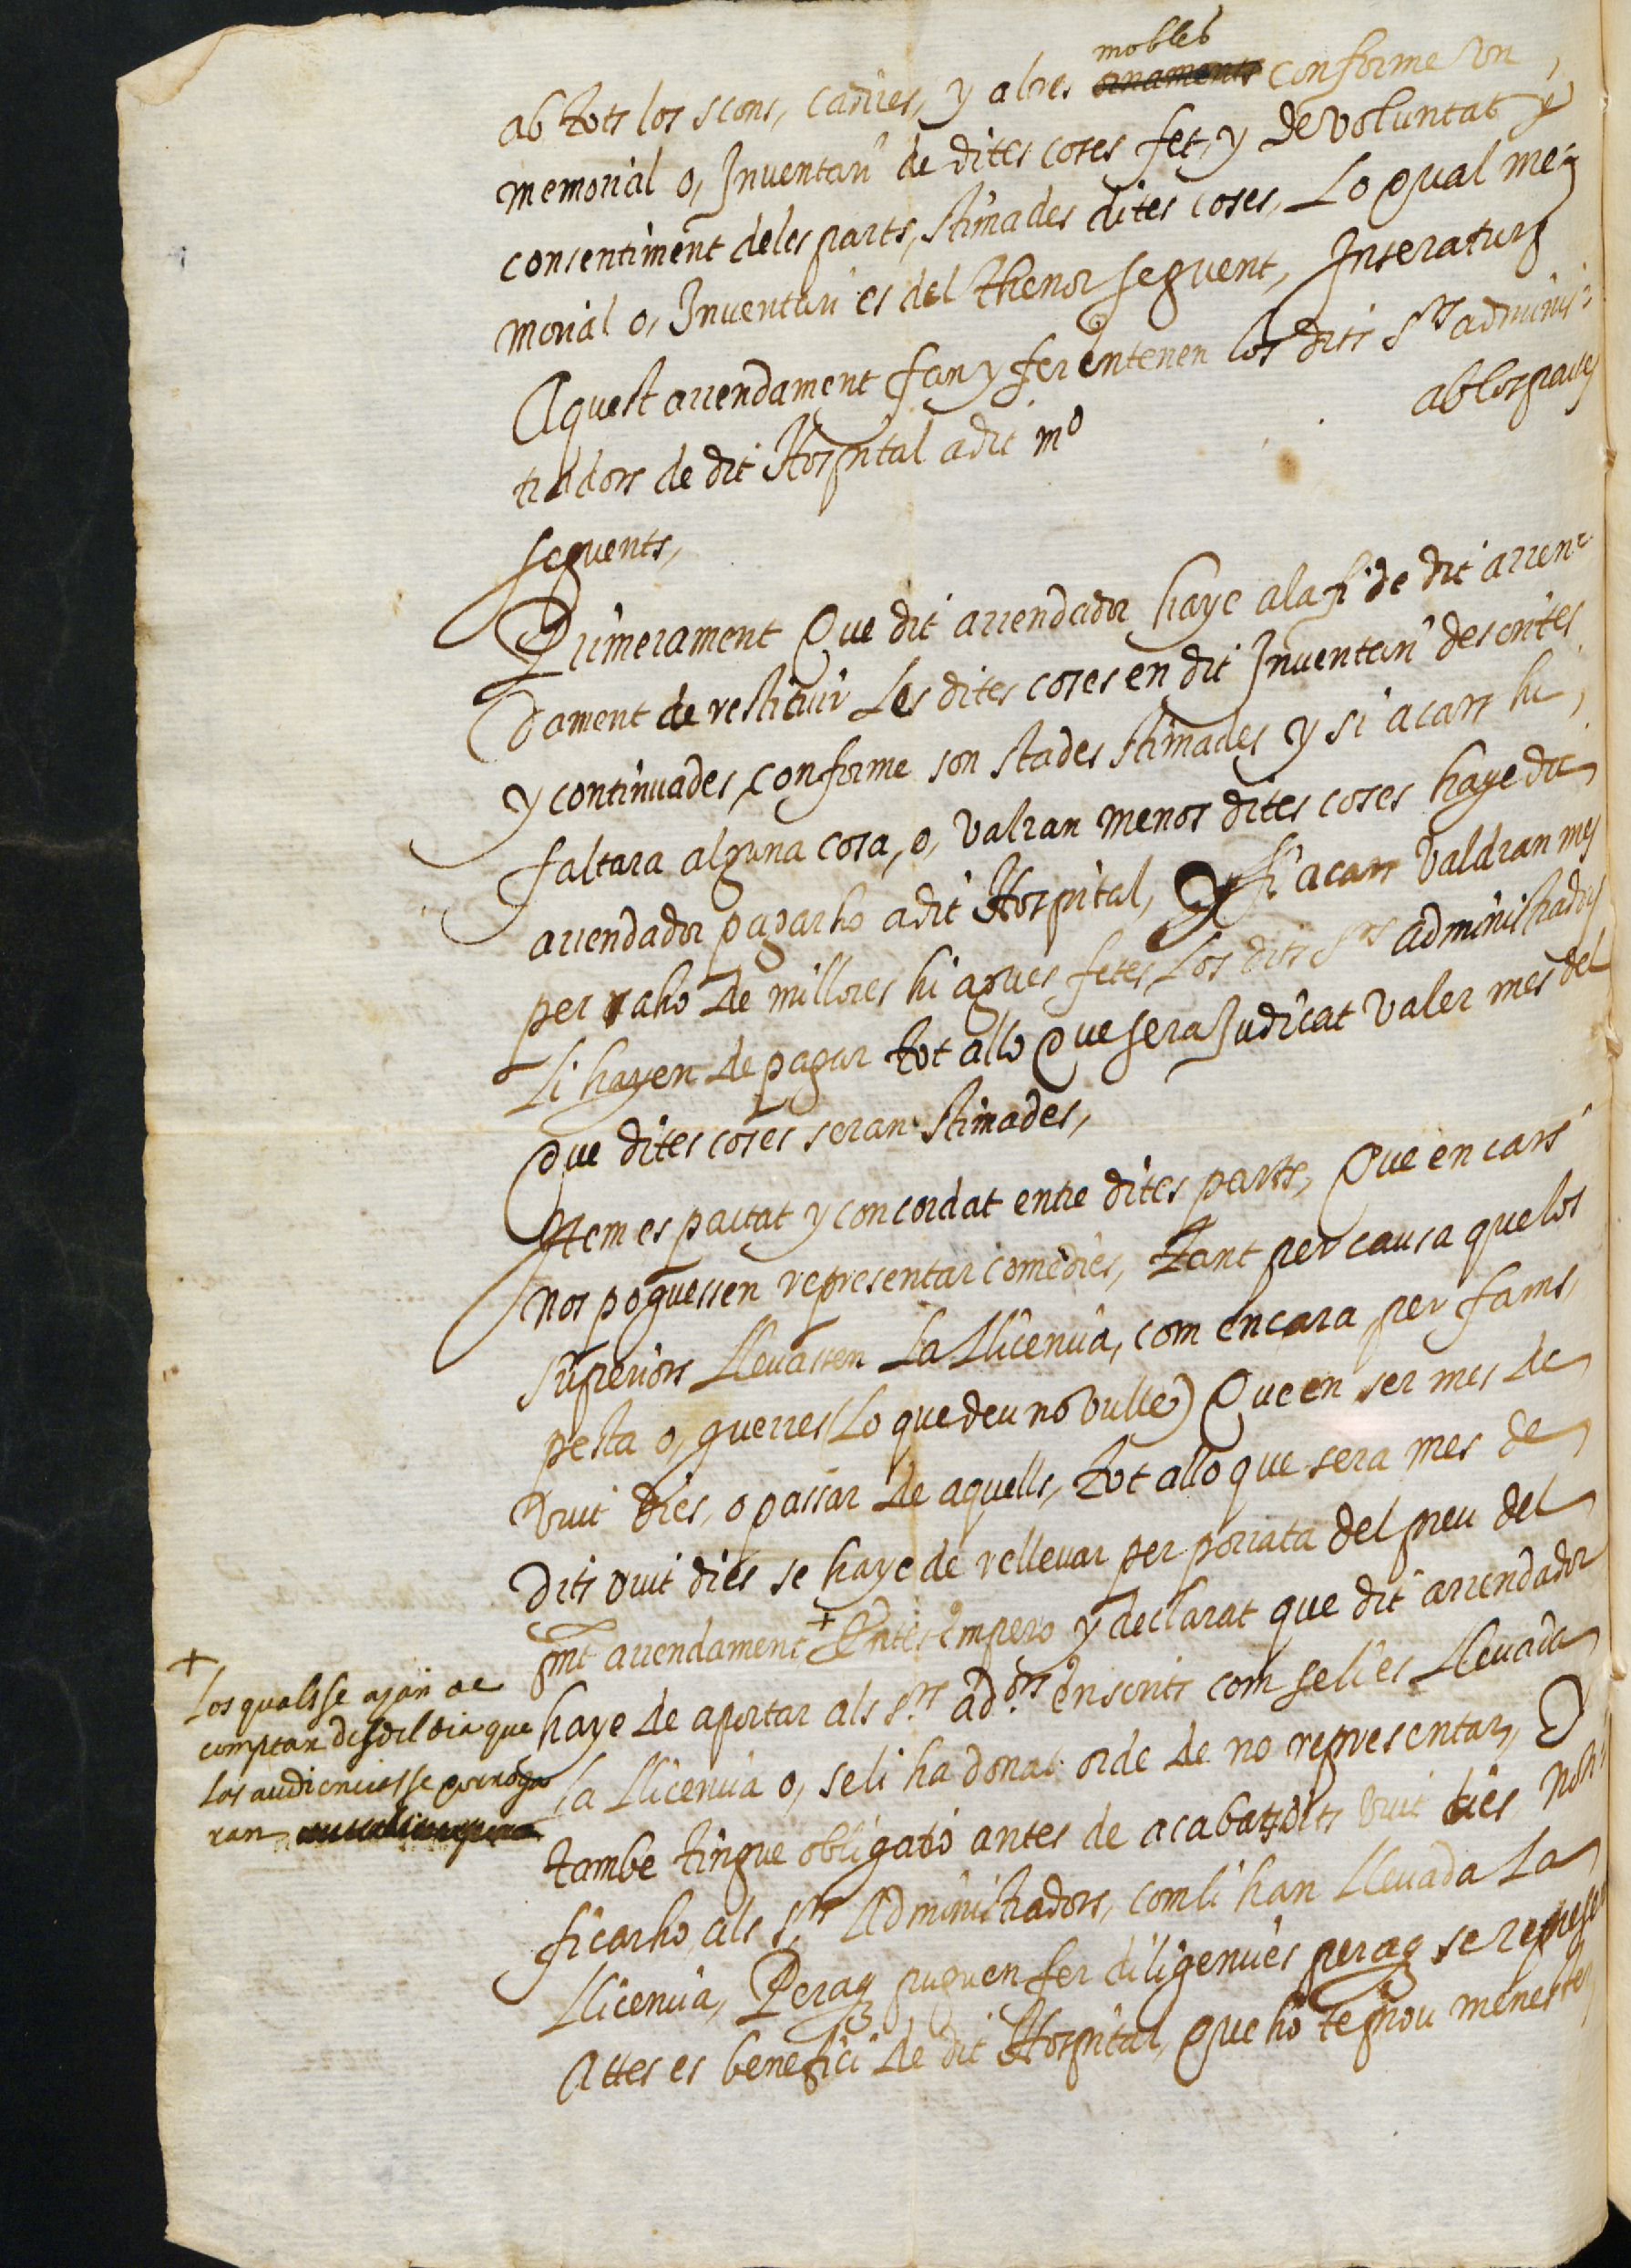 mobles
ab tots los scons, cadires, y altres ornaments conforme un
memorial o, Inventari de dites coses fet, y de voluntat y
consentiment deles parts, stimades dites coses, Lo qual me-
morial o, Inventari es del thenor seguent, Inseratur
Aquest arrendament fan y fer entenen los dits Srs adminis-
tradors de dit Hospital a dit mº ab los pactes
seguents,
Primerament Que dit arrendador haye ala fi de dit arren-
dament de restituir Les dites coses en dit Inventari descrites
y continuades, conforme son stades stimades y si a cars hi
faltara alguna cosa, o, valran menos dites coses haye dit
arrendador pagarho a dit Hospital, Y si acars valdran mes
per raho de millores hi agues fetes, Los dits Srs administradors
Li hayen de pagar tot allo Que sera Judicat valer mes del
Que dites coses seran stimades,
Item es pactat y concordat entre dites parts, Que en cars
nos poguessen representar comedies, Tant per causa que los
superiors Llevassen La Llicencia, com encara per fams,
pesta o, guerres (Lo que deu no vulle) Que en ser mes de
vuit dies, o passar de aquells, Tot allo que sera mes de
dits vuit dies se haye de rellevar per porrata del preu del
pnt arrendament + Entes empero y declarat que dit arrendador
haye de aportar als Srs adors en scrits com seli es Llevada
la Llicencia o, seli ha donat orde de no representar, Y
tambe tingue obligatio antes de acabats dits vuit dies noti-
ficarho als Srs Administradors, com li han Llevada La
Llicencia, Peraq puguen fer diligencies peraq se represen
Attes es benefici de dit Hospital, que ho te prou menester
+
Los quals se ajan de
comptar desdel dia que
las audiencies se prorroga
ran